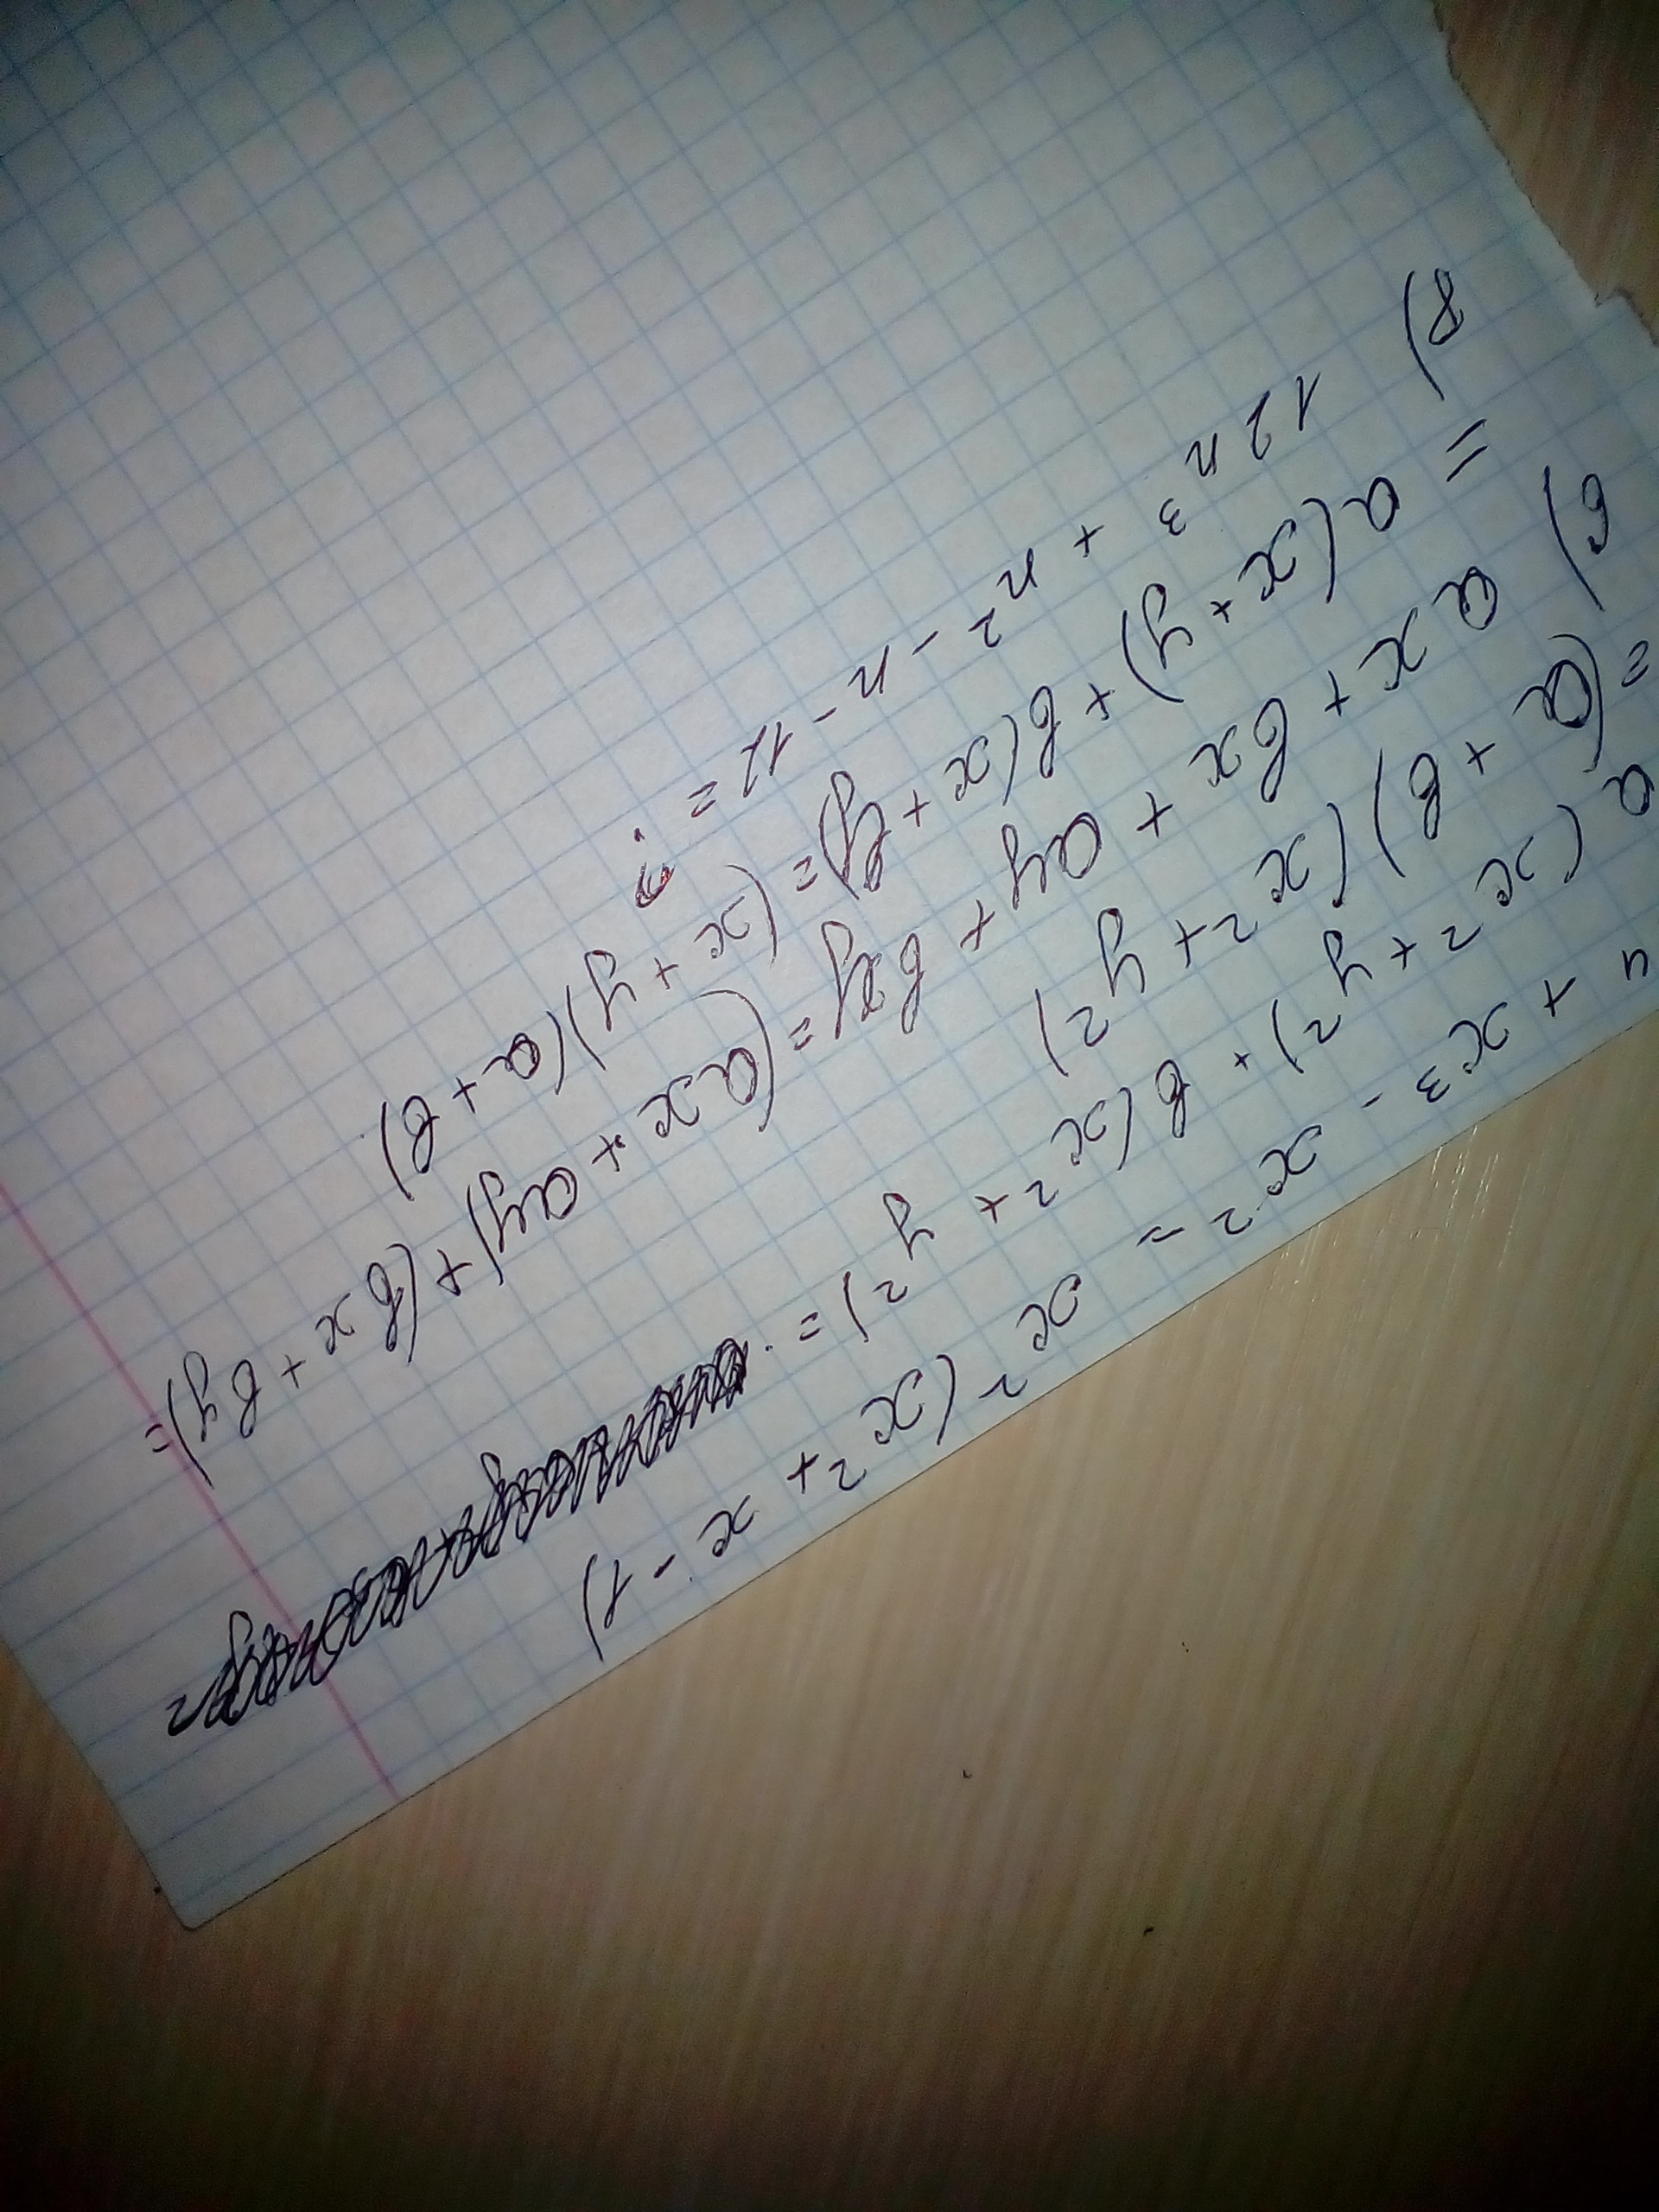 ⁴ + x³ - x² = x²(x² + x - 1)
a(x² + y²) + b(x² + y²) =
= (a + b)(x² + y²)
б) ax + bx + ay + by = (ax + ay) + (bx + by) =
= a(x + y) + b(x + y) = (x + y)(a + b)
в) 12n³ + n² - n - 12 = ?